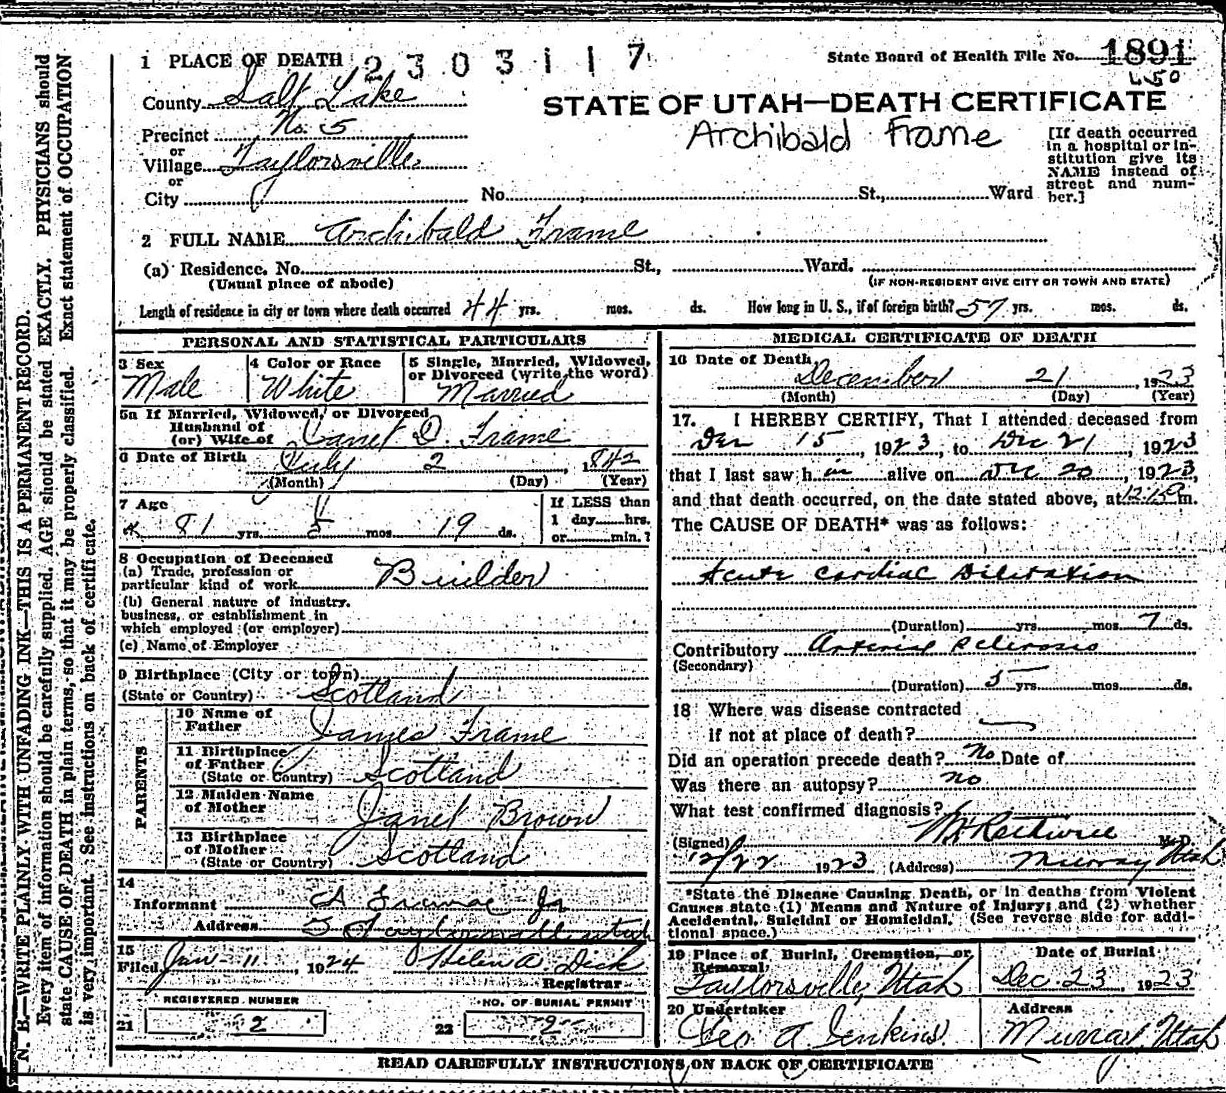 1 PLACE OF DEATH 2303117
State Board of Health File No. 1891
County Salt Lake
STATE OF UTAH—DEATH CERTIFICATE
Precinct No. 5
Archibald Frame
[If death occurred in a hospital or institution give its NAME instead of street and number.]
or
Village Taylorsville
or
City No. St., Ward
2 FULL NAME Archibald Frame
(a) Residence. No. St., Ward.
(Usual place of abode) (IF NON-RESIDENT GIVE CITY OR TOWN AND STATE)
Length of residence in city or town where death occurred 44 yrs. mos. ds. How long in U. S., if of foreign birth? 57 yrs. mos. ds.
PERSONAL AND STATISTICAL PARTICULARS
3 Sex
Male
4 Color or Race
White
5 Single, Married, Widowed,
or Divorced (write the word)
Married
5a If Married, Widowed, or Divorced
Husband of
(or) Wife of Janet D. Frame
6 Date of Birth July 2, 1842
(Month) (Day) (Year)
7 Age
81 yrs. 5 mos. 19 ds.
If LESS than
1 day hrs.
or min.?
8 Occupation of Deceased
(a) Trade, profession or
particular kind of work Builder
(b) General nature of industry,
business, or establishment in
which employed (or employer)
(c) Name of Employer
9 Birthplace (City or town)
(State or Country) Scotland
PARENTS
10 Name of
Father James Frame
11 Birthplace
of Father
(State or Country) Scotland
12 Maiden Name
of Mother Janet Brown
13 Birthplace
of Mother
(State or Country) Scotland
14
Informant A Frame Jr
Address
15
Filed Jan - 11, 1924 Helen A. Dick
Registrar
REGISTERED NUMBER
21 2
NO. OF BURIAL PERMIT
22 2
MEDICAL CERTIFICATE OF DEATH
16 Date of Death
December 21, 1923
(Month) (Day) (Year)
17. I HEREBY CERTIFY, That I attended deceased from
Dec 15, 1923, to Dec 21, 1923
that I last saw h im alive on Dec 20, 1923,
and that death occurred, on the date stated above, at m.
The CAUSE OF DEATH* was as follows:
Acute Cardiac Dilitation
(Duration) yrs. mos. 7 ds.
Contributory Arterial Sclerosis
(Secondary)
(Duration) 5 yrs. mos. ds.
18 Where was disease contracted
if not at place of death?
Did an operation precede death? No Date of
Was there an autopsy? no
What test confirmed diagnosis?
(Signed) M.D.
12/22 1923 (Address) Murray Utah
*State the Disease Causing Death, or in deaths from Violent
Causes state (1) Means and Nature of Injury; and (2) whether
Accidental, Suicidal or Homicidal. (See reverse side for addi-
tional space.)
19 Place of Burial, Cremation, or
Removal
Taylorsville, Utah
Date of Burial
Dec. 23, 1923
20 Undertaker
Geo A Jenkins
Address
Murray Utah
READ CAREFULLY INSTRUCTIONS ON BACK OF CERTIFICATE
N. B.—WRITE PLAINLY WITH UNFADING INK—THIS IS A PERMANENT RECORD.
Every item of information should be carefully supplied. AGE should be stated EXACTLY. PHYSICIANS should
state CAUSE OF DEATH in plain terms, so that it may be properly classified. Exact statement of OCCUPATION
is very important. See instructions on back of certificate.